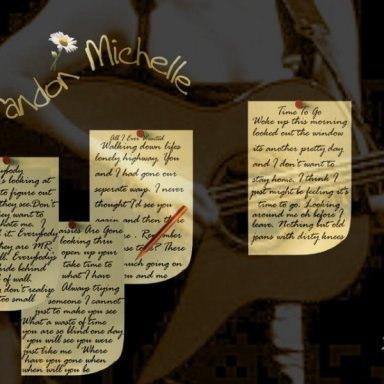 andon Michelle
Time To Go
Woke up this morning
looked out the window
its another pretty day
and I don't want to
stay home. I think I
just might be feeling it's
time to go. Looking
around me oh before I
leave. Nothing but old
jeans with dirty knees
All I Ever Wanted
Walking down lifes
lonely highway. You
and I had gone our
seperate ways. I never
thought I'd see you
again and then
Remember
There
much going on
me and me
ybody
looking at
to figure out
they see. Don't
ey want to
hate me. I
it. Everybody
hey are MR.
ll. Everybodys
ide behind
of wall.
don't realize
too small
aisies Are Gone
looking thru
open up your
take time to
what I have
Always trying
someone I cannot
just to make you see
What a waste of time
you are so blind one day
you will see you were
just like me Where
have you gone when
when will you be